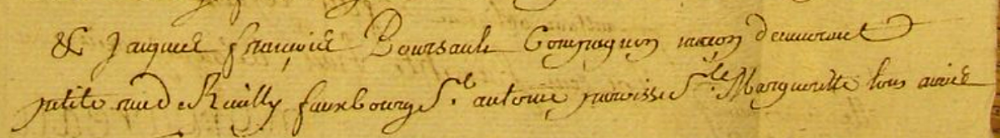 & Jacques françois Boursault Compagnon maçon demeurant
petite rue de Reuilly fauxbourg St. antoine parroisse Ste. Margueritte tous amis